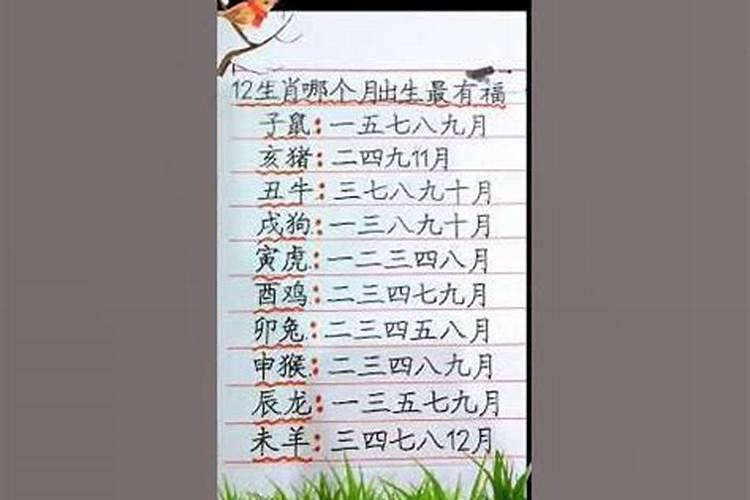 12生肖哪个月出生最有福
子鼠:一五七八九月
亥猪:二四九11月
丑牛:三七八九十月
戌狗:一三八九十月
寅虎:一二三四八月
酉鸡:二三四七九月
卯兔:二三四五八月
申猴:二三四八九月
辰龙:一三五七九月
未羊:三四七八12月